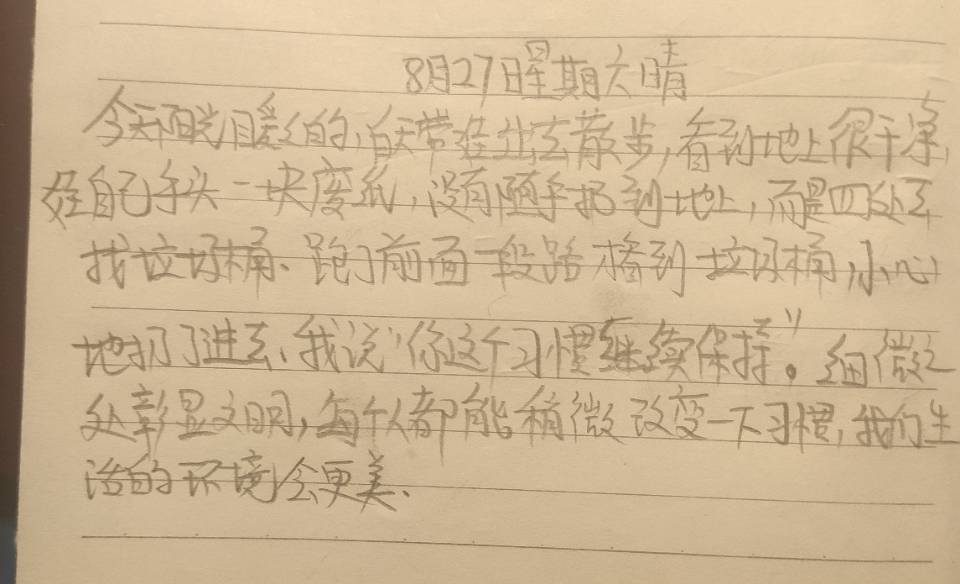 8月27日星期六晴
今天阳光暖暖的,白天带娃出去散步,看到地上很干净,
娃自己手头一块废纸,没有随手扔到地上,而是四处去
找垃圾桶、跑了前面一段路才看到垃圾桶,小心
地扔了进去、我说"你这个习惯继续保持"。细微之
处彰显文明,每个人都能稍微改变一下习惯,我们生
活的环境会更美、